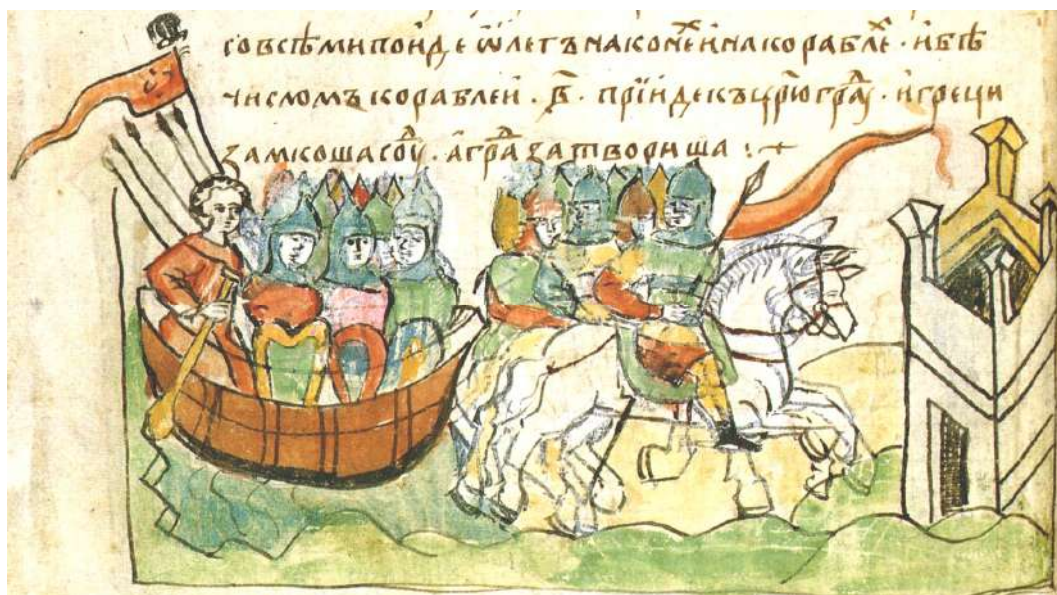 со всѣми поиде ѡлегъ на конеⷯ и на кораблеⷯ · и бѣ
числомъ кораблеи · ҂в҃ · прїиде къ црю граⷣ · и греци
замкоша соуⷣ · а граⷣ затвориша :·